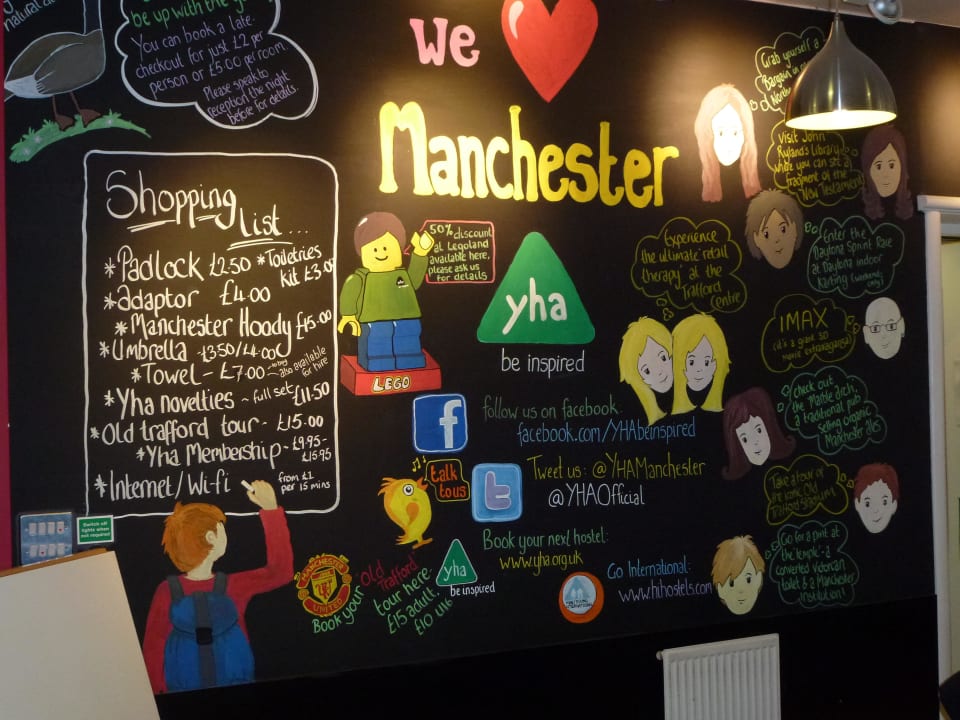 natural
be up with the
You can book a late
checkout for just £2 per
person or £5.00 per room.
Please speak to
reception the night
before for details.
We
Manchester
Shopping
List...
*Padlock £2.50
*Toiletries
Kit £3.00
*adaptor £4.00
*Manchester Hoody £15.00
*Umbrella - £3.50/£4.00
*Towel - £7.00
also available
for hire
*Yha novelties ~ full set £11.50
*Old trafford tour - £15.00
*Yha Membership - £9.95-
£15.95
*Internet/Wi-fi from £1
per 15 mins
Switch off
lights when
not required
50% discount
at Legoland
available here,
please ask us
for details
LEGO
yha
be inspired
follow us on facebook.
facebook.com/YHAbeinspired
talk
to us
Tweet us: @YHAManchester
@YHAOfficial
Book your next hostel:
www.yha.org.uk
yha
be inspired
Go International:
www.hihostels.com
MANCHESTER
UNITED
Book your
Old Trafford
tour here.
£15 adult,
£10 U16
Grab yourself a
Bargain in
Visit John
Ryland's Library
where you can see a
fragment of the
New Testament
Experience
the ultimate retail
therapy at the
Trafford
Centre
Enter the
Daytona Sprint Race
at Daytona indoor
Karting
IMAX
(it's a giant
movie extravaganza)
check out
the 'Marble arch,
a traditional pub
selling organic
Manchester ales
Take a tour of
the iconic Old
Trafford Stadium
Go for a pint at
the 'temple'- a
converted Victorian
toilet & a Manchester
Institution!